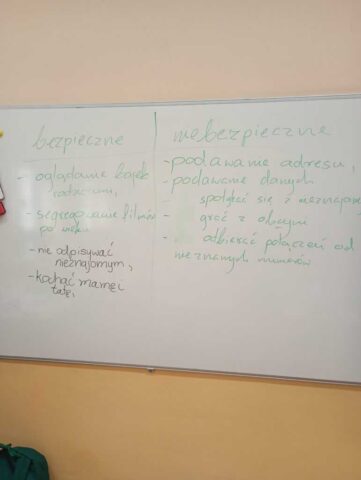 bezpieczne
- oglądanie bajek
rodzinnie,
- segregowanie filmów
po wieku
- nie odpisywać
nieznajomym,
- kochać mamęi
tatę,
niebezpieczne
- podawanie adresu,
- podawanie danych
spotykać się z nieznajom
- grać z obcym
- odbierać połączeń od
nieznanych numerów